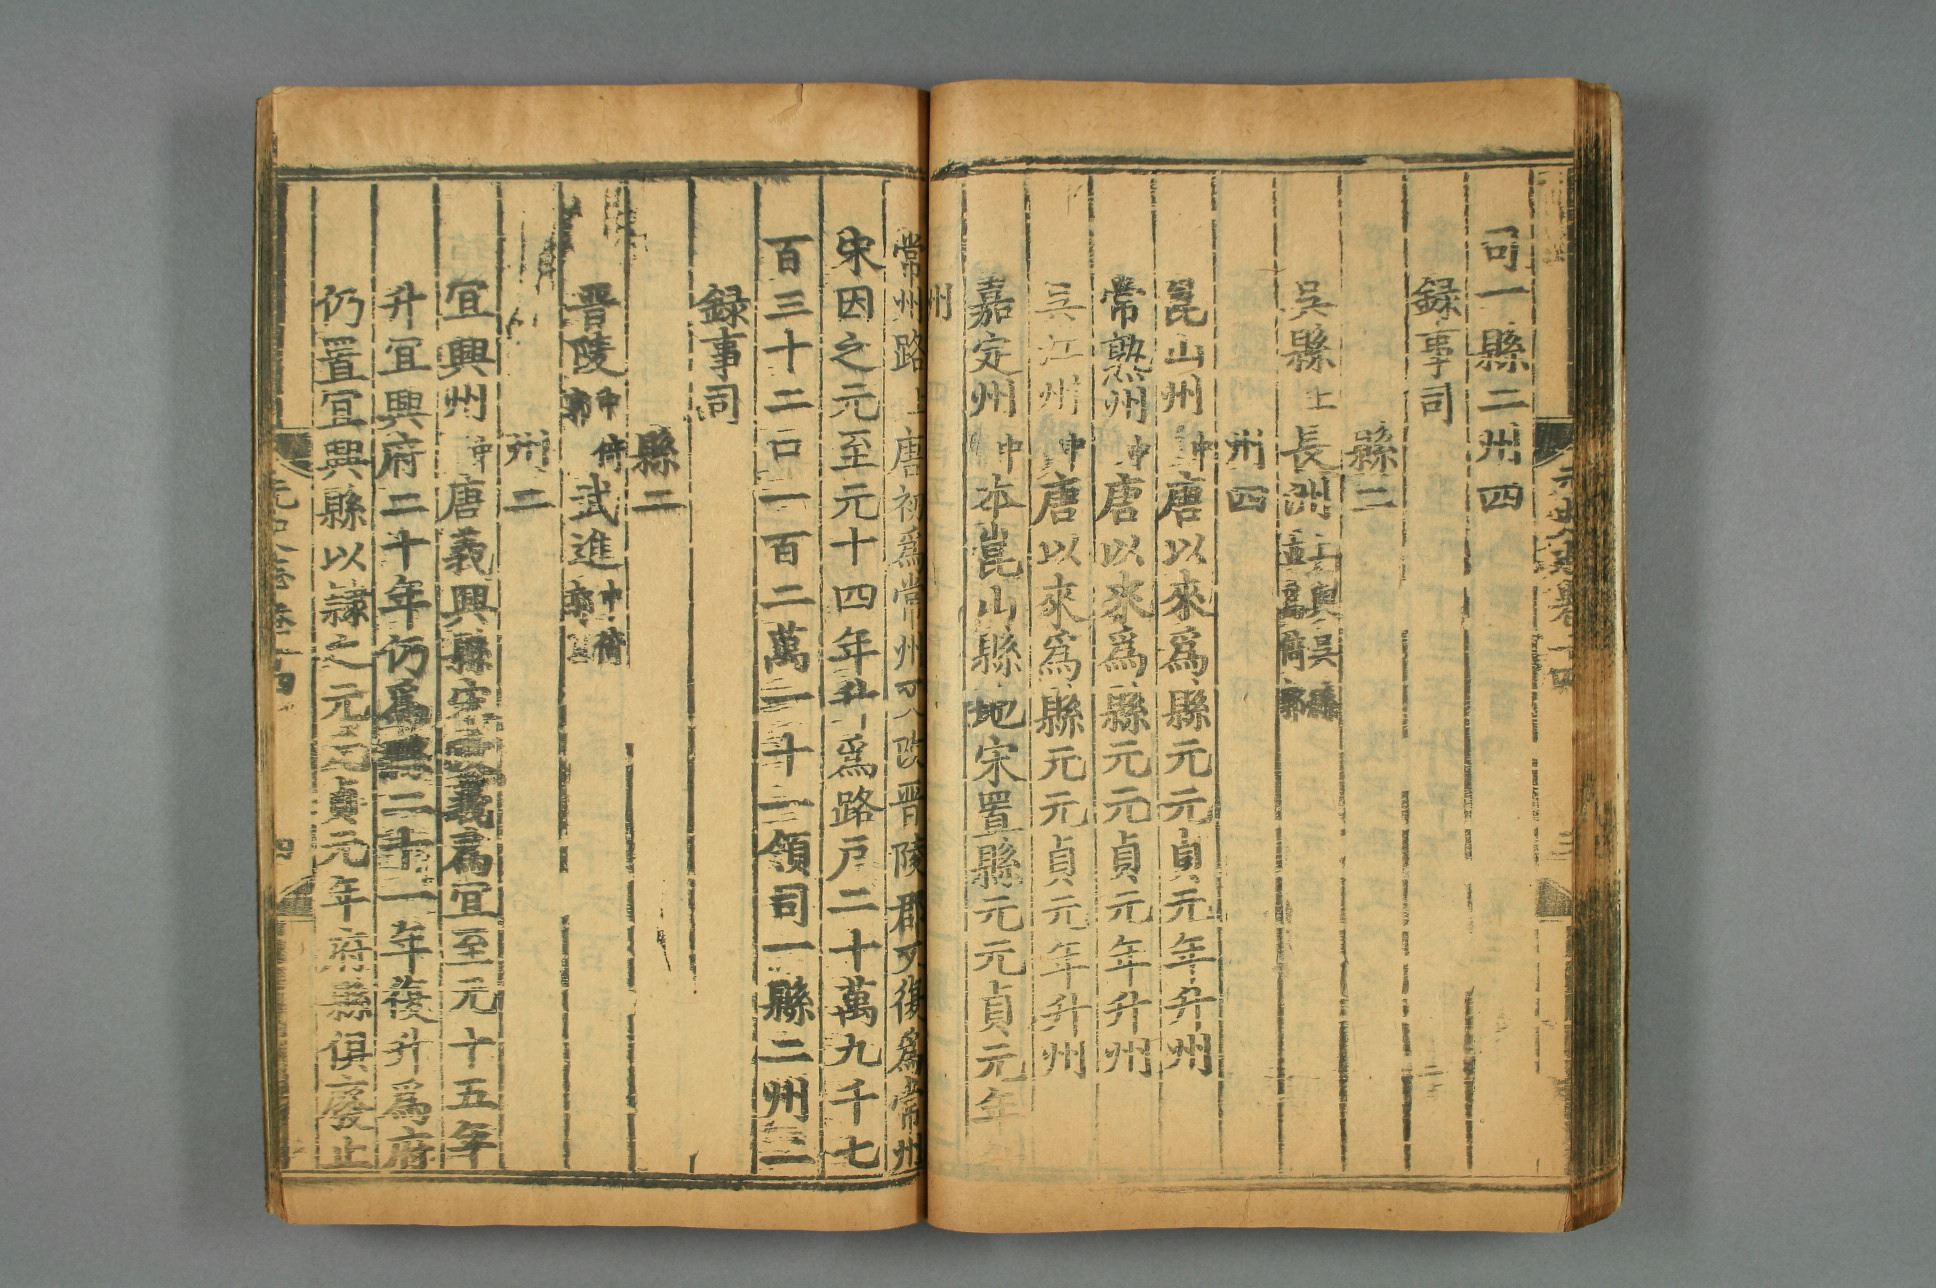 司一縣二州四
録事司
縣二
吳縣上 長洲上與吳縣並爲倚郭
州四
崑山州中唐以來爲縣元元貞元年升州
常熟州中唐以來爲縣元元貞元年升州
吳江州中唐以來爲縣元元貞元年升州
嘉定州中本崑山縣地宋置縣元元貞元年
州
常州路上唐初爲常州又改晋陵郡又復爲常州
宋因之元至元十四年升爲路户二十萬九千七
百三十二口一百二萬二十一領司一縣二州二
録事司
縣二
晋陵中倚郭 武進中倚郭
州二
宜興州中唐義興縣宋改義爲宜至元十五年
升宜興府二十年仍爲縣二十一年復升爲府
仍置宜興縣以隷之元元貞元年府縣俱廢止
四